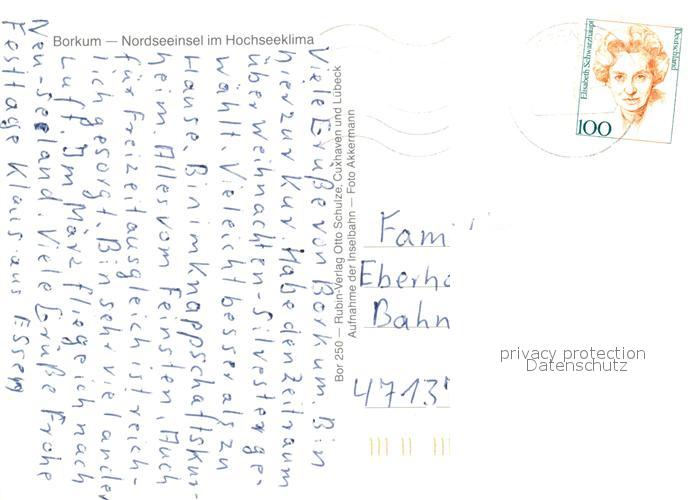 Borkum — Nordseeinsel im Hochseeklima
Viele Grüße von Borkum. Bin
hier zur Kur. Habe den Zeitraum
über Weihnachten-Silvester ge-
wählt. Vieleicht besser als zu
Hause. Bin im Knappschaftskur-
heim. Alles vom Feinsten. Auch
für Freizeitausgleich ist reich-
lich gesorgt. Bin sehr viel an der
Luft. Im März fliege ich nach
Neu-Seeland. Viele Grüße Frohe
Festtage Klaus aus Essen
Bor 250 — Rubin-Verlag Otto Schulze, Cuxhaven und Lübeck
Aufnahme der Inselbahn — Foto Akkermann
Elisabeth Schwarzhaupt
Deutschland
100
Fam
Eberha
Bahn
4713
privacy protection
Datenschutz